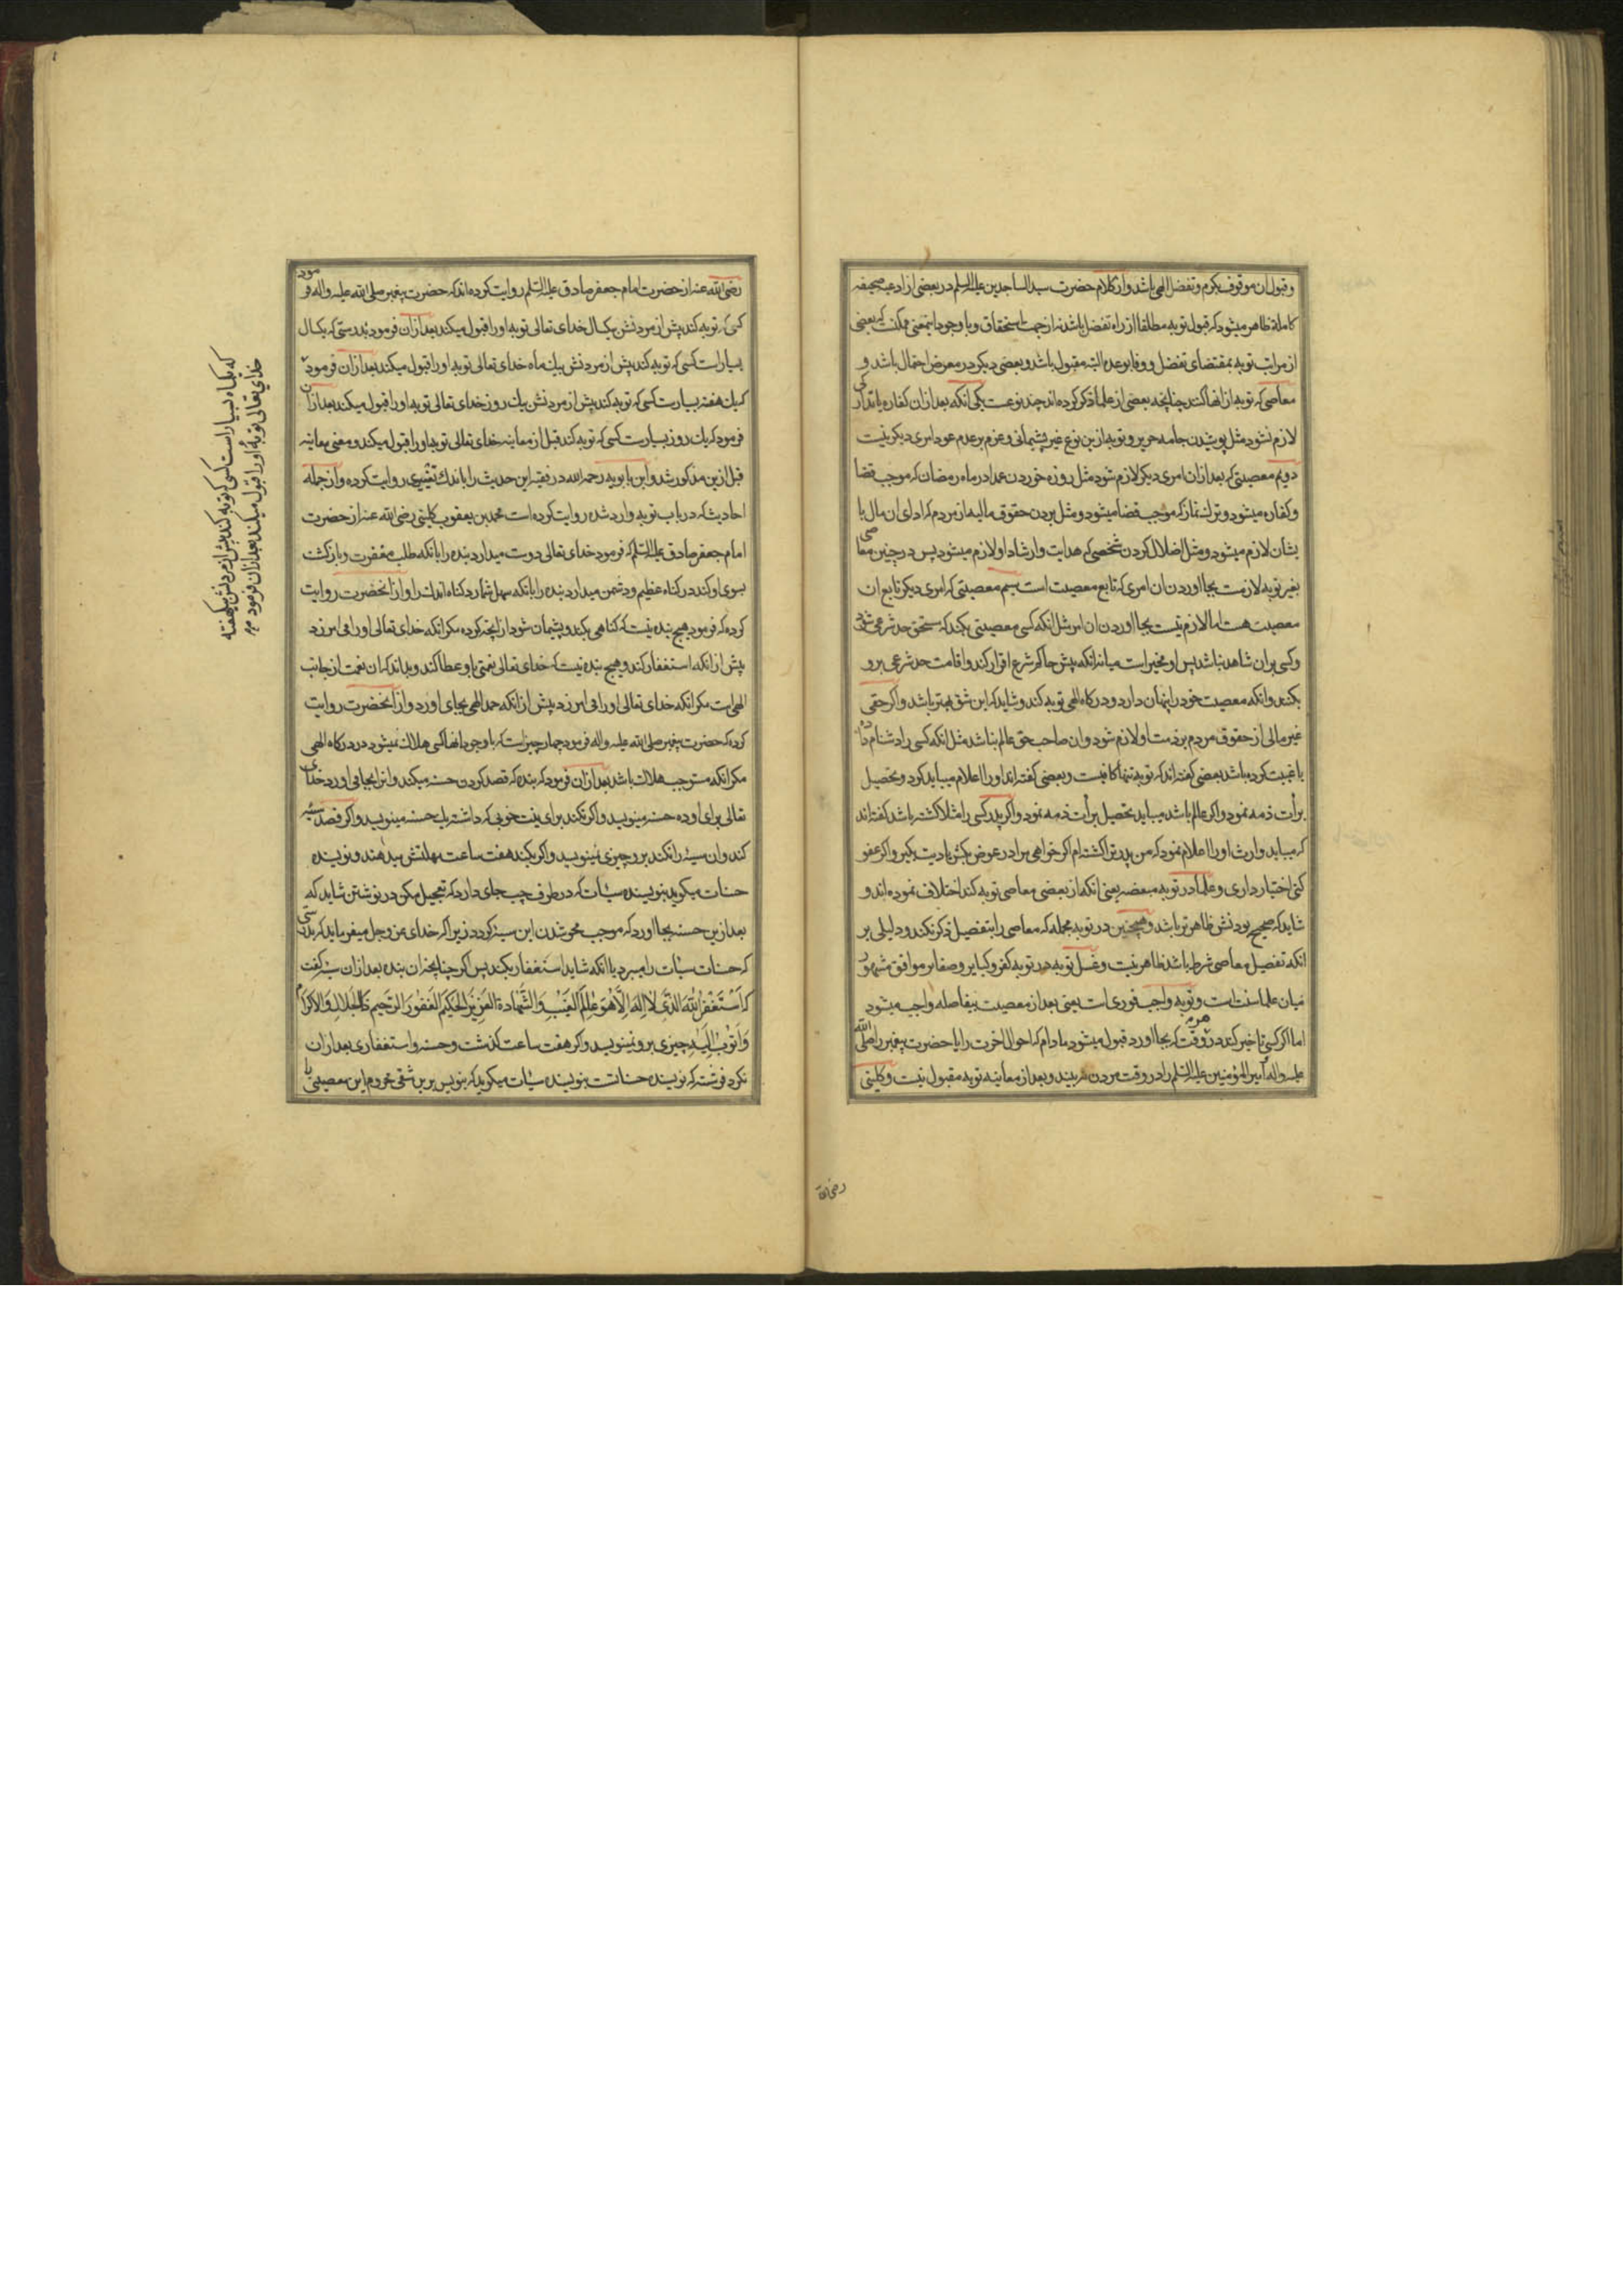 و قبول ان موقوف بکرم و تفضل الهی باشد و از کلام حضرت سید الساجدین علیه السلم در بعضی از ادعیه صحیفه
کامله ظاهر میشود که قبول توبه مطلقا از راه تفضل باشد نه از جهت استحقاق و با وجود اینمعنی ممکنست که بعضی
از مراتب توبه بمقتضای تفضل و وفا بوعده البته مقبول باشد و بعضی دیکر در معرض احتمال باشد و
معاصی که توبه از انها کنند چنانچه بعضی از علما ذکر کرده اند چند نوعست یکی انکه بعد از ان کفاره یا تدارکی
لازم نشود مثل پوشیدن جامه حریر و توبه ازین نوع غیر پشیمانی و عزم بر عدم عود امری دیکر نیست
دویم معصیتی که بعد از ان امری دیکر لازم شود مثل روزه خوردن عمدا در ماه رمضان که موجب قضا
و کفاره میشود و ترک نماز که موجب قضا میشود و مثل بردن حقوق مالیه از مردم که ادای ان مال با
یشان لازم میشود و مثل اضلال کردن شخصی که هدایت و ارشاد او لازم میشود پس در چنین معاصی
بغیر توبه لازمست بجا اوردن ان امری که تابع معصیت است سیم معصیتی که امری دیکر تابع ان
معصیت هست اما لازم نیست بجا اوردن ان امر مثل انکه کسی معصیتی بکند که مستحق حد شرعی شود
و کسی بران شاهد نباشد پس او مخیر است میانه انکه پیش حاکم شرع اقرار کند و اقامت حد شرعی برو
بکنند و انکه معصیت خود را پنهان دارد و در کاه الهی توبه کند و شاید که این شق بهتر باشد و اکر حقی
غیر مالی از حقوق مردم بر ذمت او لازم شود و ان صاحب حق عالم نباشد مثل انکه کسی را دشنام داده
یا غیبت کرده باشد بعضی کفته اند که توبه تنها کافیست و بعضی کفته اند او را اعلام میباید کرد و تحصیل
برأت ذمه نمود و اکر عالم باشد میباید تحصیل برأت ذمه نمود و اکر پدر کسی را مثلا کشته باشد کفته اند
که میباید وارث او را اعلام نمود که من پدر ترا کشته ام اکر خواهی مرا در عوض بکش یا دیت بکیر و اکر عفو
کنی اختیار داری و علما در توبه مبعضه یعنی انکه از بعضی معاصی توبه کند اختلاف نموده اند و
شاید که صحیح بودنش ظاهرتر باشد و همچنین در توبه مجمله که معاصی را بتفصیل ذکر نکند و دلیلی بر
انکه تفصیل معاصی شرط باشد ظاهر نیست و غسل توبه در توبه کفر و کبایر و صغایر موافق مشهور
میان علما سنت است و توبه واجب فوری است یعنی بعد از معصیت بیفاصله واجب میشود
اما اکر کسی تاخیر کند در هر وقت که بجا اورد قبول میشود مادام که احوال اخرت را یا حضرت پیغمبر را صلی الله
علیه واله امیر المؤمنین علیه السلم را در وقت مردن نه بیند و بعد از معاینه توبه مقبول نیست و کلینی
رضی الله
رضی الله عنه از حضرت امام جعفر صادق علیه السلم روایت کرده اند که حضرت پیغمبر صلی الله علیه واله فرمود
کسی که توبه کند پیش از مردنش بیکسال خدای تعالی توبه او را قبول میکند بعد از ان فرمود بدرستی که یکسال
بسیار است کسی که توبه کند پیش از مردنش بیک ماه خدای تعالی توبه او را قبول میکند بعد از ان فرمود
که یک هفته بسیارست کسی که توبه کند پیش از مردنش بیک روز خدای تعالی توبه او را قبول میکند بعد از ان
فرمود که یک روز بسیارست کسی که توبه کند قبل از معاینه خدای تعالی توبه او را قبول میکند و معنی معاینه
قبل ازین مذکور شد و ابن بابویه رحمه الله در فقیه این حدیث را باندک تغییری روایت کرده و از جمله
احادیثی که در باب توبه وارد شده روایت کرده است محمد بن یعقوب کلینی رضی الله عنه از حضرت
امام جعفر صادق علیه السلم که فرمود خدای تعالی دوست میدارد بنده را بانکه طلب مغفرت و بازکشت
بسوی او کند در کناه عظیم و دشمن میدارد بنده را بانکه سهل شمارد کناه اندک را و از انحضرت روایت
کرده که فرمود هیچ بنده نیست که کناهی بکند و پشیمان شود از انچه کرده مکر انکه خدای تعالی او را می امرزد
پیش از انکه استغفار کند و هیچ بنده نیست که خدای تعالی نعمتی باو عطا کند و بداند که ان نعمت از جانب
الهی است مکر انکه خدای تعالی او را می امرزد پیش از انکه حمد الهی بجای اورد و از انحضرت روایت
کرده که حضرت پیغمبر صلی الله علیه واله فرمود چهار چیز است که با وجود انها کسی هلاک نمیشود در درکاه الهی
مکر انکه مستوجب هلاک باشد بعد از ان فرمود که بنده که قصد کردن حسنه میکند و انرا بجا می اورد خدای
تعالی برای او ده حسنه مینویسد و اکر نکند برای نیت خوبی که داشته یک حسنه مینویسد و اکر قصد سیئه
کند و ان سیئه را نکند برو چیزی نمینویسد و اکر بکند هفت ساعت مهلتش میدهند و نویسنده
حسنات میکوید بنویسنده سیئات که در طرف چپ جای دارد که تعجیل مکن در نوشتن شاید که
بعد ازین حسنه بجا اورد که موجب محو شدن این سیئه کردد زیرا که خدای عز وجل میفرماید که بدرستی
که حسنات سیئات را میبرد یا انکه شاید استغفار بکند پس اکر چنانچه ان بنده بعد از ان سیئه کفت
که اَسْتَغْفِرُ اللّٰهَ الَّذی لٰا اِلٰهَ اِلّٰا هُوَ عٰالِمَ الْغَیْبِ وَ الشَّهادَةِ الْعَزیزَ الْحَکیمَ الْغَفُورَ الرَّحیمَ ذَا الْجَلالِ وَ الْاِکْرٰامِ
وَ اَتُوبُ اِلَیْهِ چیزی برو نمینویسد و اکر هفت ساعت کذشت و حسنه و استغفاری بعد از ان
نکرد فرشته که نویسنده حسناتست بنویسنده سیئات میکوید که بنویس برین شقی محروم این معصیتی را
که یکماه بسیار است کسی که توبه کند پیش از مردنش بیکهفته
خدای تعالی توبهٔ او را قبول میکند بعد از ان فرمود